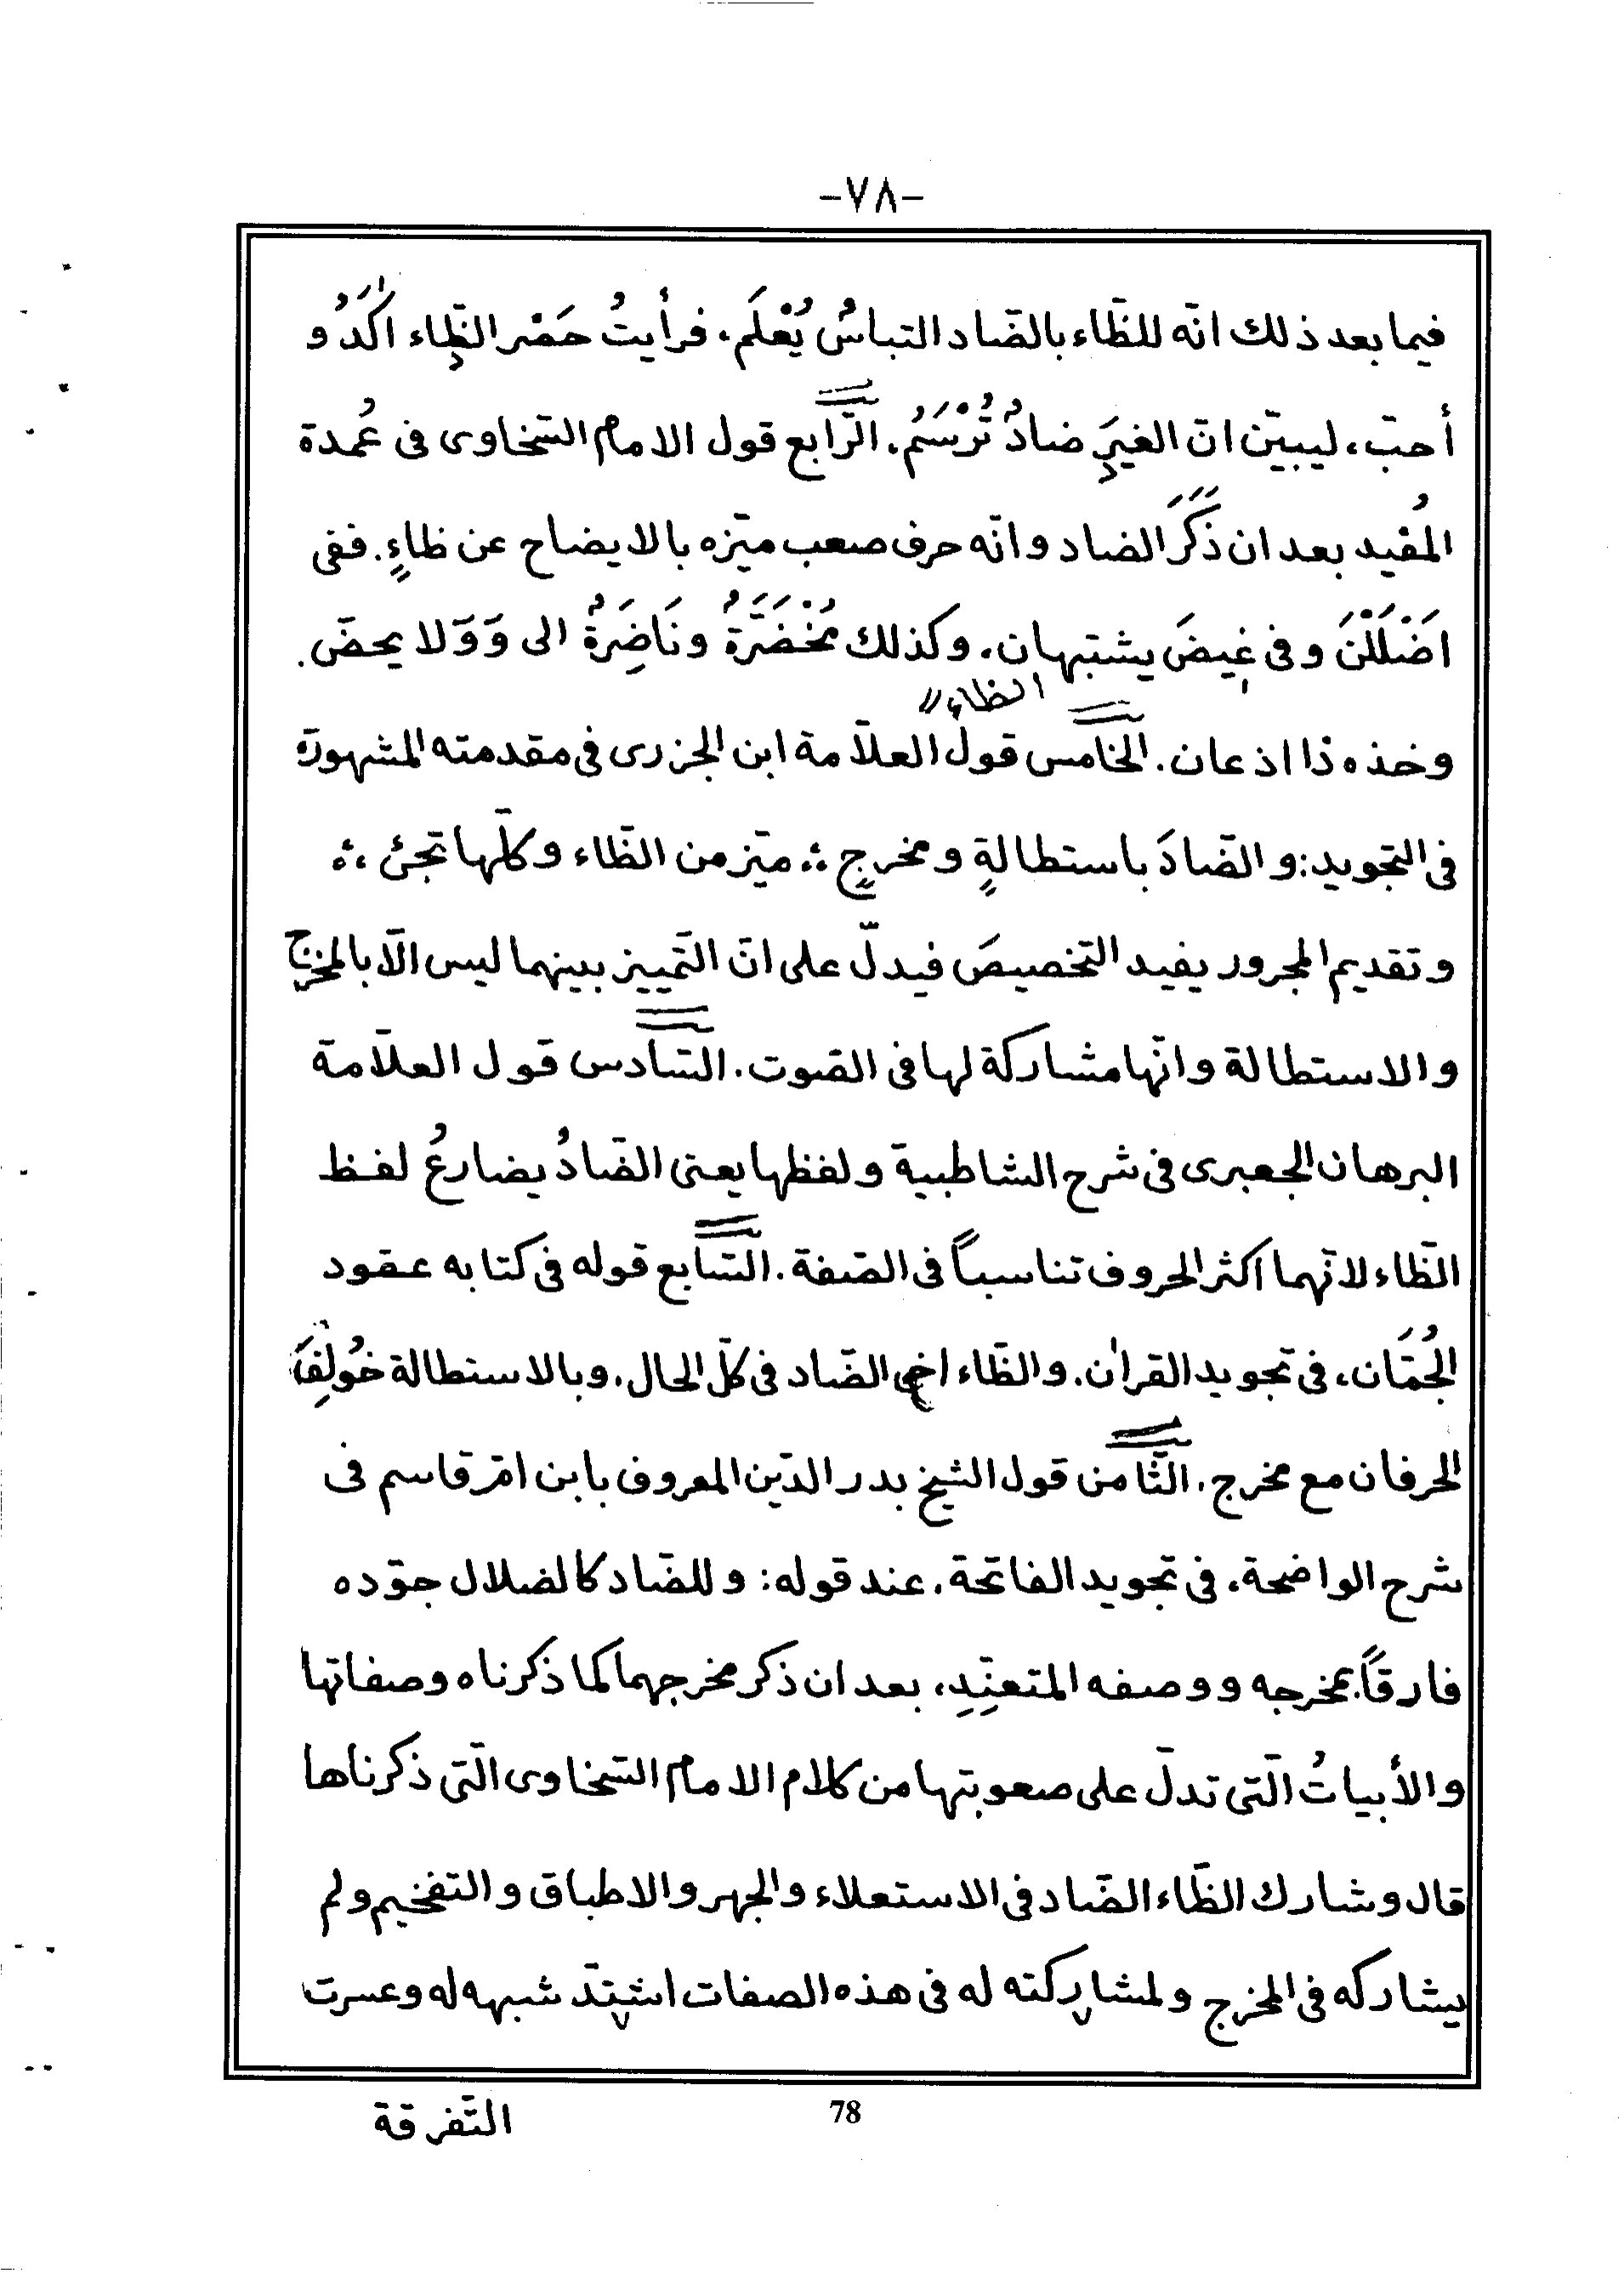 -٧٨-
فيما بعد ذلك انّه للظّاء بالضّاد التباسٌ يُعْلَم، فرأيتُ حَصْرَ الظّاءِ اٰكَدُ و
أحبّ، ليبيّن انّ الغيرَ ضادٌ تُرْسَمُ. الرّابع قول الامام السّخاوى فى عُمدة
المُفيد بعد ان ذَكَرَ الضاد وانّه حرف صعب ميّزه بالايضاح عن ظاءٍ. ففى
اَضْلَلْنَ وفى غِيضَ يشتبهان، وكذلك مُخْضَرَّةٌ ونَاضِرَةٌ الى وَوَلا يحضّ.
الظاء
وخذه ذا اذعان. الخامس قول العلاّمة ابن الجزرى فى مقدمته المشهورة
فى التجويد: و الضّادَ باستطالةٍ ومخرجٍ ؞ ميّز من الظّاء وكلّها تجئ ؞
وتقديم المجرور يفيد التخصيصَ فيدلّ على انّ التّمييز بينهما ليس الاّ بالمخرج
والاستطالة وانّها مشاركة لها فى الصّوت. السّادس قول العلاّمة
البرهان الجعبرى فى شرح الشاطبية ولفظها يعنى الضّادُ يضارعُ لفظ
الظّاء لانّهما اكثر الحروف تناسباً فى الصّفة. السّابع قوله فى كتابه عقود
الجُمَان، فى تجويد القراٰن. والظّاء اخى الضّاد فى كلّ الحال، وبالاستطالة خُولِفَ
الحرفان مع مخرج. الثّامن قول الشيخ بدر الدّين المعروف بابن امّ قاسم فى
شرح الواضحة، فى تجويد الفاتحة. عند قوله: وللضّاد كالضلال جوّده
فارقاً بمخرجه ووصفه المتعنّدِ، بعد ان ذكر مخرجهما كما ذكرناه وصفاتها
والأبياتُ الّتى تدلّ على صعوبتها من كلام الامام السّخاوى الّتى ذكرناها
قال وشارك الظّاء الضّاد فى الاستعلاء والجهر والاطباق والتفخيم ولم
يشاركه فى المخرج ولمشاركته له فى هذه الصفات اشتدّ شبهه له وعسرت
التّفرقة
78